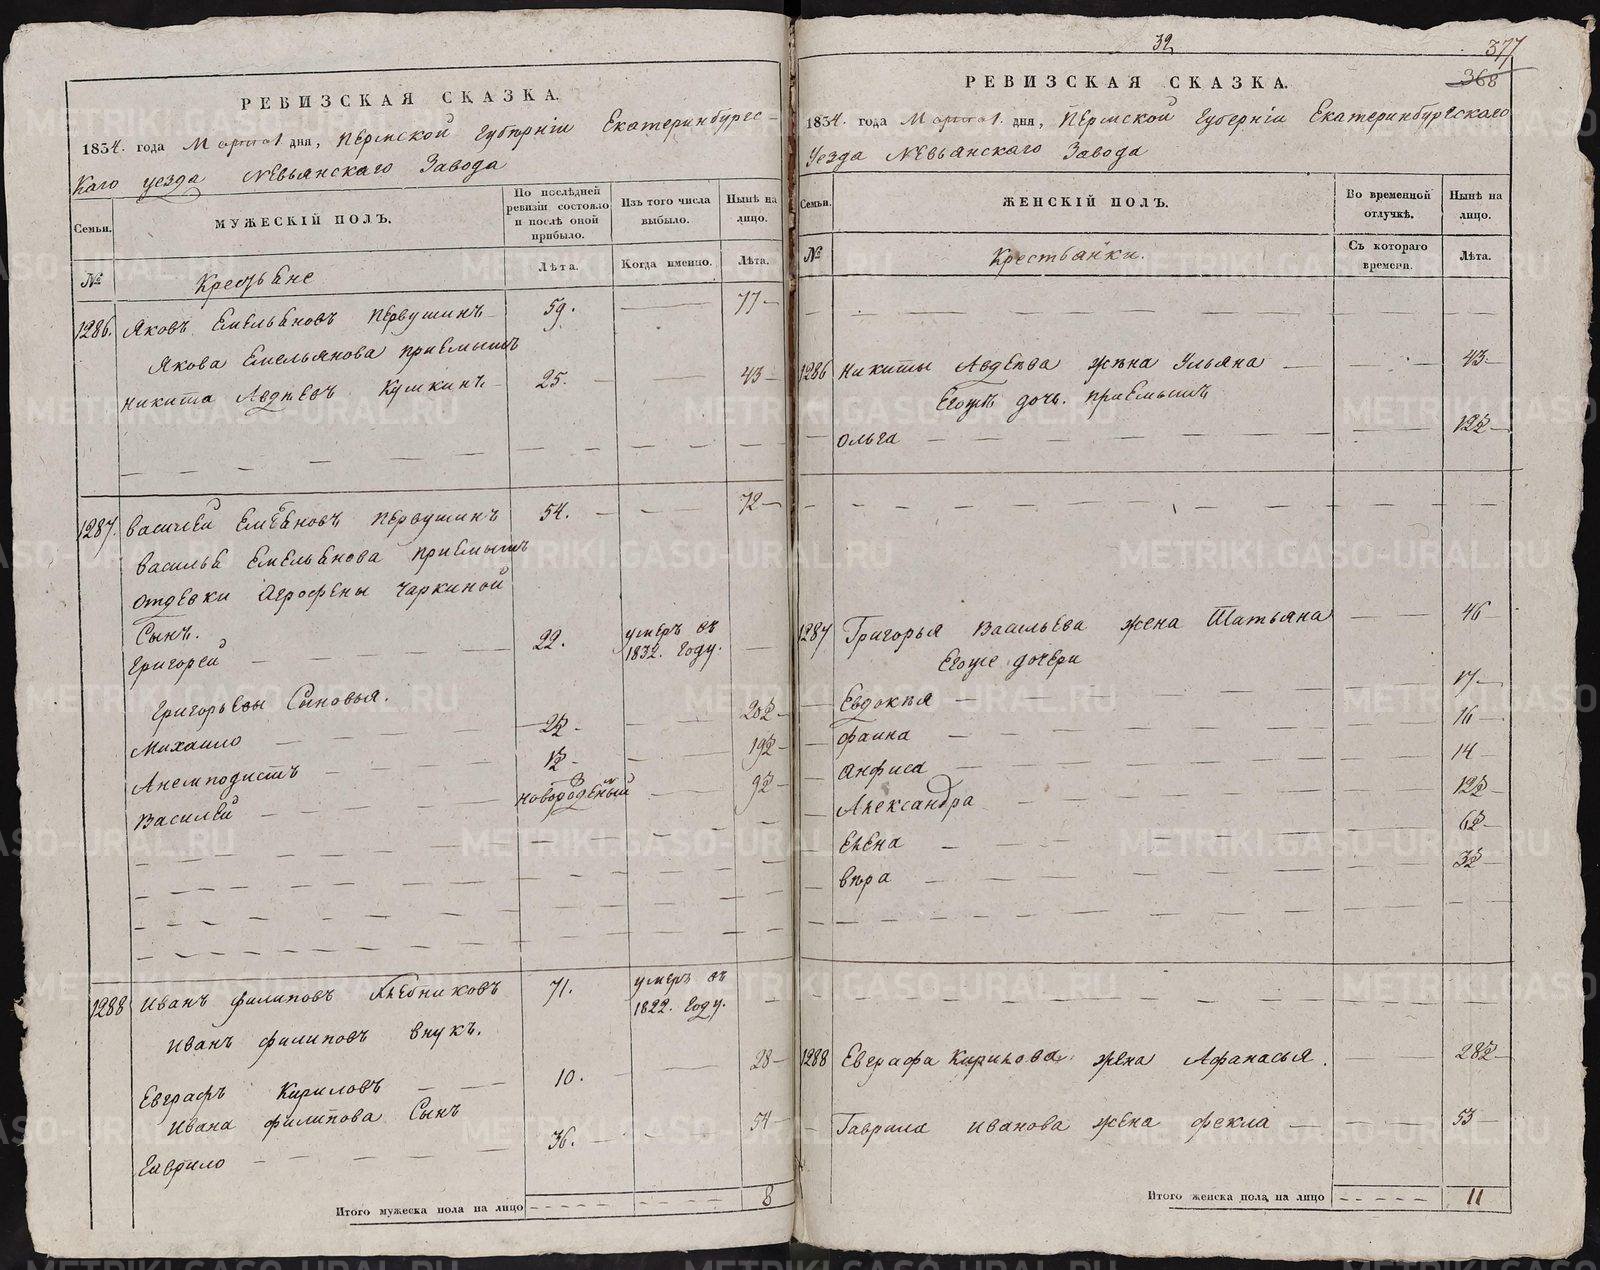 РЕВИЗСКАЯ СКАЗКА.
1834. года Марта 1. дня, Пермской Губерніи Екатеринбургс-
каго уезда Невьянскаго Завода
Семьи.
МУЖЕСКІЙ ПОЛЪ.
По послѣдней ревизіи состояло и послѣ оной прибыло.
Изъ того числа выбыло.
Нынѣ на лицо.
№
Крестьяне
Лѣта.
Когда именно.
Лѣта.
1286. Яковъ Емельяновъ Первушинъ 59. 77
Якова Емельянова приемышъ
Никита Авдѣевъ Кушкинъ 25. 43
1287. Василей Емеляновъ Первушинъ 54. 72
Василья Емельянова приемышъ
отдевки Агрофены Чаркиной
Сынъ.
Григорей 22. умеръ въ 1832. Году.
Григорьевы Сыновья.
Михаило 2½ 20½
Анемподистъ ½ 19½
Василей новорожденый 9½
1288 Иванъ Филиповъ Хлебниковъ 71. умеръ въ 1822. Году.
Иванъ Филиповъ внукъ.
Евграфъ Кириловъ 10. 28
Ивана Филипова Сынъ
Гаврило 36. 54
Итого мужеска пола на лицо 8
32
377
368
РЕВИЗСКАЯ СКАЗКА.
1834. года Марта 1. дня, Пермской Губерніи Екатеринбургскаго
Уезда Невьянскаго Завода
Семьи.
ЖЕНСКІЙ ПОЛЪ.
Во временной отлучкѣ.
Нынѣ на лицо.
№
Крестьянки.
Съ котораго времени.
Лѣта.
1286 Никиты Авдѣева жена Ульяна 43
Егоже дочь. приемышъ
Ольга 12½
1287 Григорья Васильева жена Татьяна 46
Егоже дочери
Евдокѣя 17
Фаина 16
Анфиса 14
Александра 12½
Елена 6½
Вѣра 3½
1288 Евграфа Кирилова жена Афанасья. 28½
Гаврила Иванова жена Фекла 53
Итого женска пола на лицо 11
METRIKI.GASO-URAL.RU